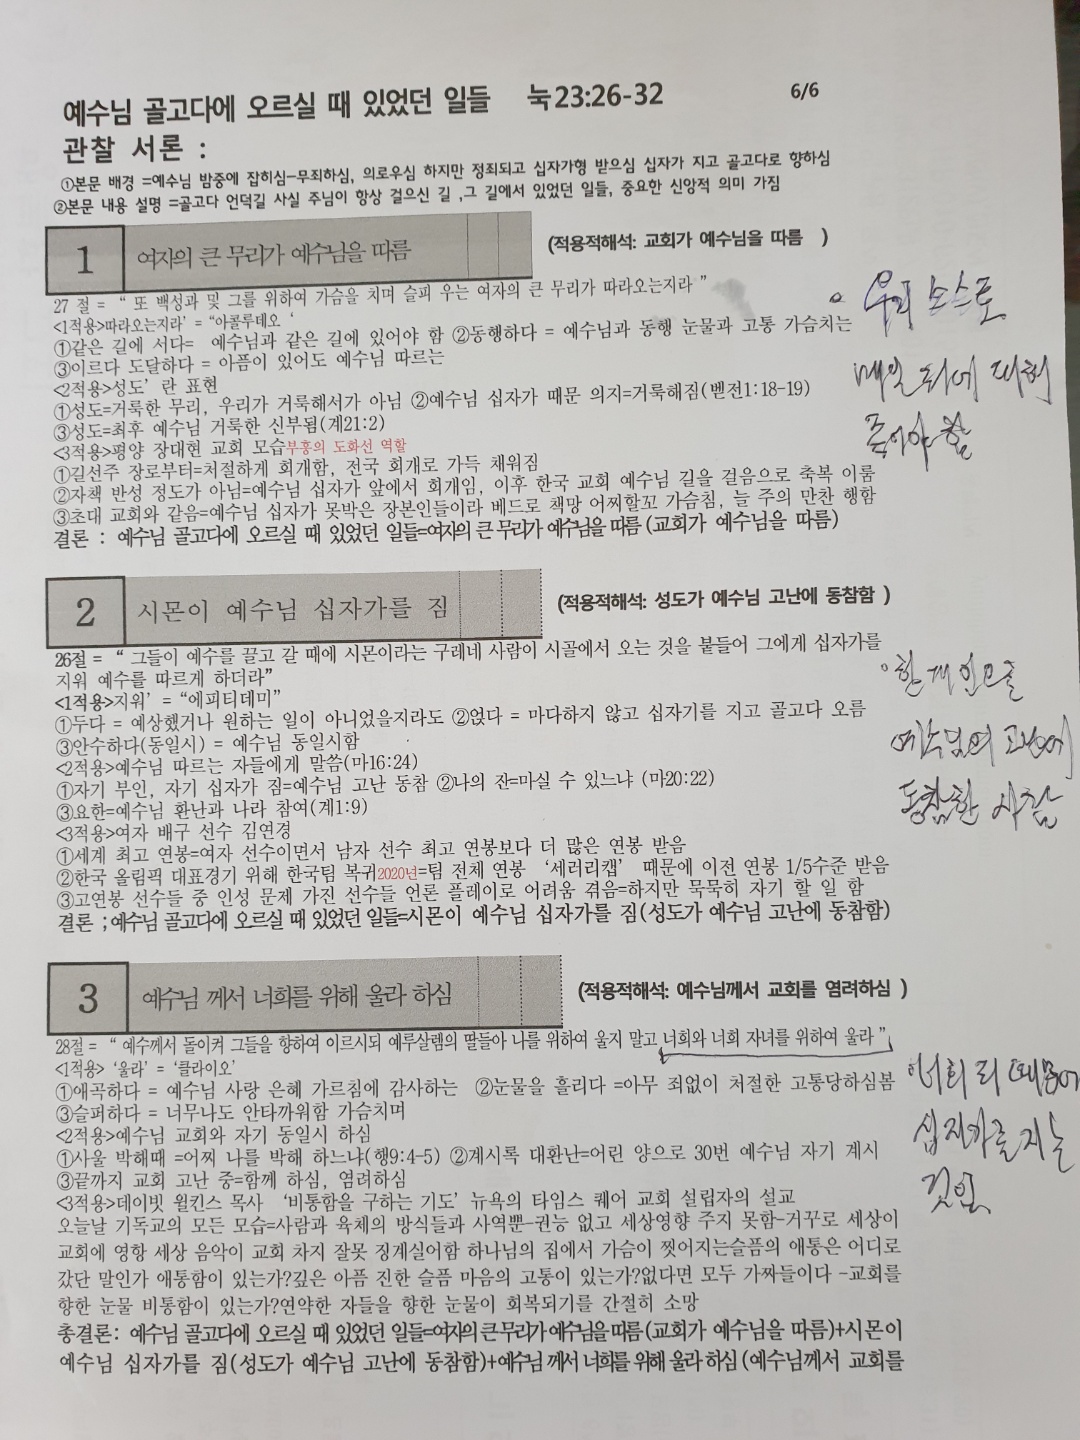 예수님 골고다에 오르실 때 있었던 일들 눅23:26-32 6/6
관찰 서론 :
①본문 배경 =예수님 밤중에 잡히심-무죄하심, 의로우심 하지만 정죄되고 십자가형 받으심 십자가 지고 골고다로 향하심
②본문 내용 설명 =골고다 언덕길 사실 주님이 항상 걸으신 길 ,그 길에서 있었던 일들, 중요한 신앙적 의미 가짐
1 여자의 큰 무리가 예수님을 따름 (적용적해석: 교회가 예수님을 따름 )
27 절 = “ 또 백성과 및 그를 위하여 가슴을 치며 슬피 우는 여자의 큰 무리가 따라오는지라 ”
<1적용>따라오는지라’ = “아콜루데오 ‘
①같은 길에 서다= 예수님과 같은 길에 있어야 함 ②동행하다 = 예수님과 동행 눈물과 고통 가슴치는
③이르다 도달하다 = 아픔이 있어도 예수님 따르는
<2적용>성도’ 란 표현
①성도=거룩한 무리, 우리가 거룩해서가 아님 ②예수님 십자가 때문 의지=거룩해짐(벧전1:18-19)
③성도=최후 예수님 거룩한 신부됨(계21:2)
<3적용>평양 장대현 교회 모습부흥의 도화선 역할
①길선주 장로부터=처절하게 회개함, 전국 회개로 가득 채워짐
②자책 반성 정도가 아님=예수님 십자가 앞에서 회개임, 이후 한국 교회 예수님 길을 걸음으로 축복 이룸
③초대 교회와 같음=예수님 십자가 못박은 장본인들이라 베드로 책망 어찌할꼬 가슴침, 늘 주의 만찬 행함
결론 : 예수님 골고다에 오르실 때 있었던 일들=여자의 큰 무리가 예수님을 따름 (교회가 예수님을 따름)
우리 스스로
매일 죄에 대해
죽어야 함
2 시몬이 예수님 십자가를 짐 (적용적해석: 성도가 예수님 고난에 동참함 )
26절 = “ 그들이 예수를 끌고 갈 때에 시몬이라는 구레네 사람이 시골에서 오는 것을 붙들어 그에게 십자가를
지워 예수를 따르게 하더라”
<1적용>지워’ = “에피티데미”
①두다 = 예상했거나 원하는 일이 아니었을지라도 ②얹다 = 마다하지 않고 십자기를 지고 골고다 오름
③안수하다(동일시) = 예수님 동일시함
<2적용>예수님 따르는 자들에게 말씀(마16:24)
①자기 부인, 자기 십자가 짐=예수님 고난 동참 ②나의 잔=마실 수 있느냐 (마20:22)
③요한=예수님 환난과 나라 참여(계1:9)
<3적용>여자 배구 선수 김연경
①세계 최고 연봉=여자 선수이면서 남자 선수 최고 연봉보다 더 많은 연봉 받음
②한국 올림픽 대표경기 위해 한국팀 복귀2020년=팀 전체 연봉 ‘세러리캡’ 때문에 이전 연봉 1/5수준 받음
③고연봉 선수들 중 인성 문제 가진 선수들 언론 플레이로 어려움 겪음=하지만 묵묵히 자기 할 일 함
결론 ;예수님 골고다에 오르실 때 있었던 일들=시몬이 예수님 십자가를 짐 (성도가 예수님 고난에 동참함)
한 개인으로
예수님의 고난에
동참한 사람
3 예수님 께서 너희를 위해 울라 하심 (적용적해석: 예수님께서 교회를 염려하심 )
28절 = “ 예수께서 돌이켜 그들을 향하여 이르시되 예루살렘의 딸들아 나를 위하여 울지 말고 너희와 너희 자녀를 위하여 울라 ”
<1적용> ‘울라’ = ‘클라이오’
①애곡하다 = 예수님 사랑 은혜 가르침에 감사하는 ②눈물을 흘리다 =아무 죄없이 처절한 고통당하심봄
③슬퍼하다 = 너무나도 안타까워함 가슴치며
<2적용>예수님 교회와 자기 동일시 하심
①사울 박해때 =어찌 나를 박해 하느냐(행9:4-5) ②계시록 대환난=어린 양으로 30번 예수님 자기 계시
③끝까지 교회 고난 중=함께 하심, 염려하심
<3적용>데이빗 윌킨스 목사 ‘비통함을 구하는 기도’ 뉴욕의 타임스 퀘어 교회 설립자의 설교
오늘날 기독교의 모든 모습=사람과 육체의 방식들과 사역뿐-권능 없고 세상영향 주지 못함-거꾸로 세상이
교회에 영항 세상 음악이 교회 차지 잘못 징계실어함 하나님의 집에서 가슴이 찢어지는슬픔의 애통은 어디로
갔단 말인가 애통함이 있는가?깊은 아픔 진한 슬픔 마음의 고통이 있는가?없다면 모두 가짜들이다 -교회를
향한 눈물 비통함이 있는가?연약한 자들을 향한 눈물이 회복되기를 간절히 소망
총결론: 예수님 골고다에 오르실 때 있었던 일들=여자의 큰 무리가 예수님을 따름 (교회가 예수님을 따름)+시몬이
예수님 십자가를 짐(성도가 예수님 고난에 동참함)+예수님 께서 너희를 위해 울라 하심 (예수님께서 교회를
너희 죄 때문에
십자가를 지는
것임